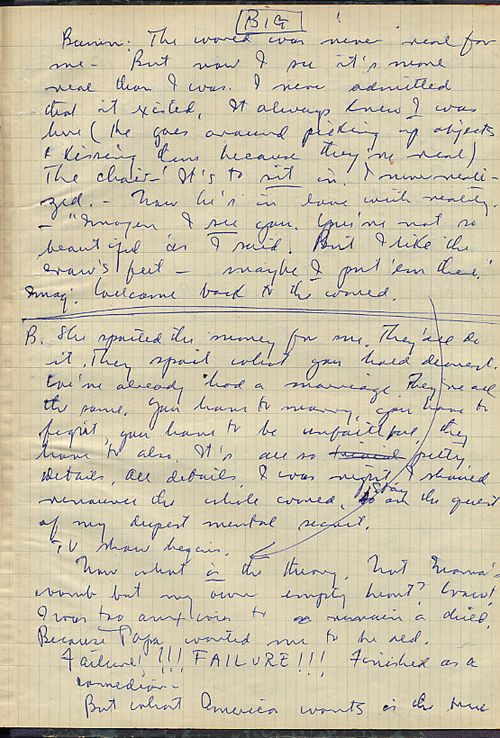 BIG
Bumm: The world was never real for
me - But now I see it's more
real than I was. I never admitted
that it existed. It always knew I was
here (he goes around picking up objects
& kissing them because they're real)
The chair! It's to sit in. I never reali-
zed. - Now he's in love with reality.
- "Imogen I see you. You're not so
beautiful as I said. But I like the
crow's feet - maybe I put 'em there."
Imog. Welcome back to the world.
B. She spoiled the money for me. They all do
it. They spoil what you hold dearest.
We've already had a marriage. They're all
the same. You have to marry, you have to
fight, you have to be unfaithful, they
have to also. It's all so petty
details, all details. I was right I should
renounce the whole world, stay on the quest
of my deepest mental secret.
TV show begins.
Now what is the theory. Not Mama's
womb but my own empty heart? Wow!
I was too anxious to remain a child.
Because Papa wanted me to be old.
Failure! !!! FAILURE!!! Finished as a
comedian.
But what America wants is the true